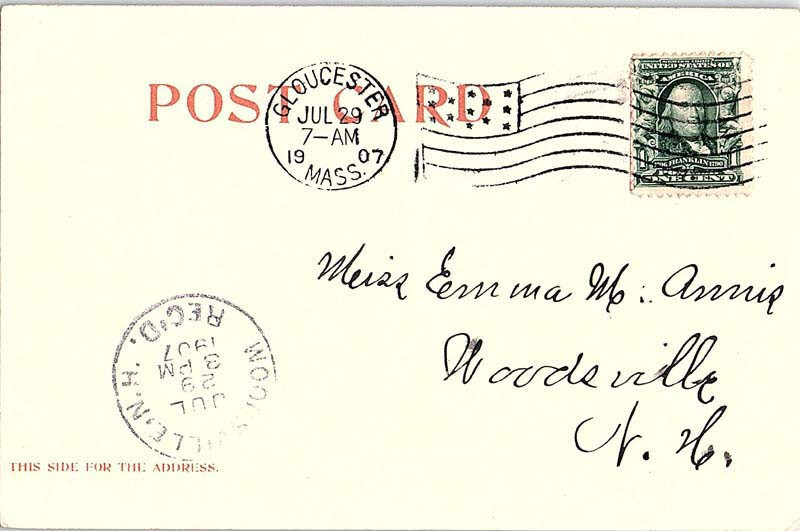 POST CARD
GLOUCESTER
JUL 29
7-AM
19 07
MASS.
UNITED STATES OF
AMERICA
1706 FRANKLIN 1790
ONE CENT
Miss Emma M. Annis
Woodsville
N. H.
WOODSVILLE, N.H.
JUL
29
3 PM
1907
REC'D.
THIS SIDE FOR THE ADDRESS.